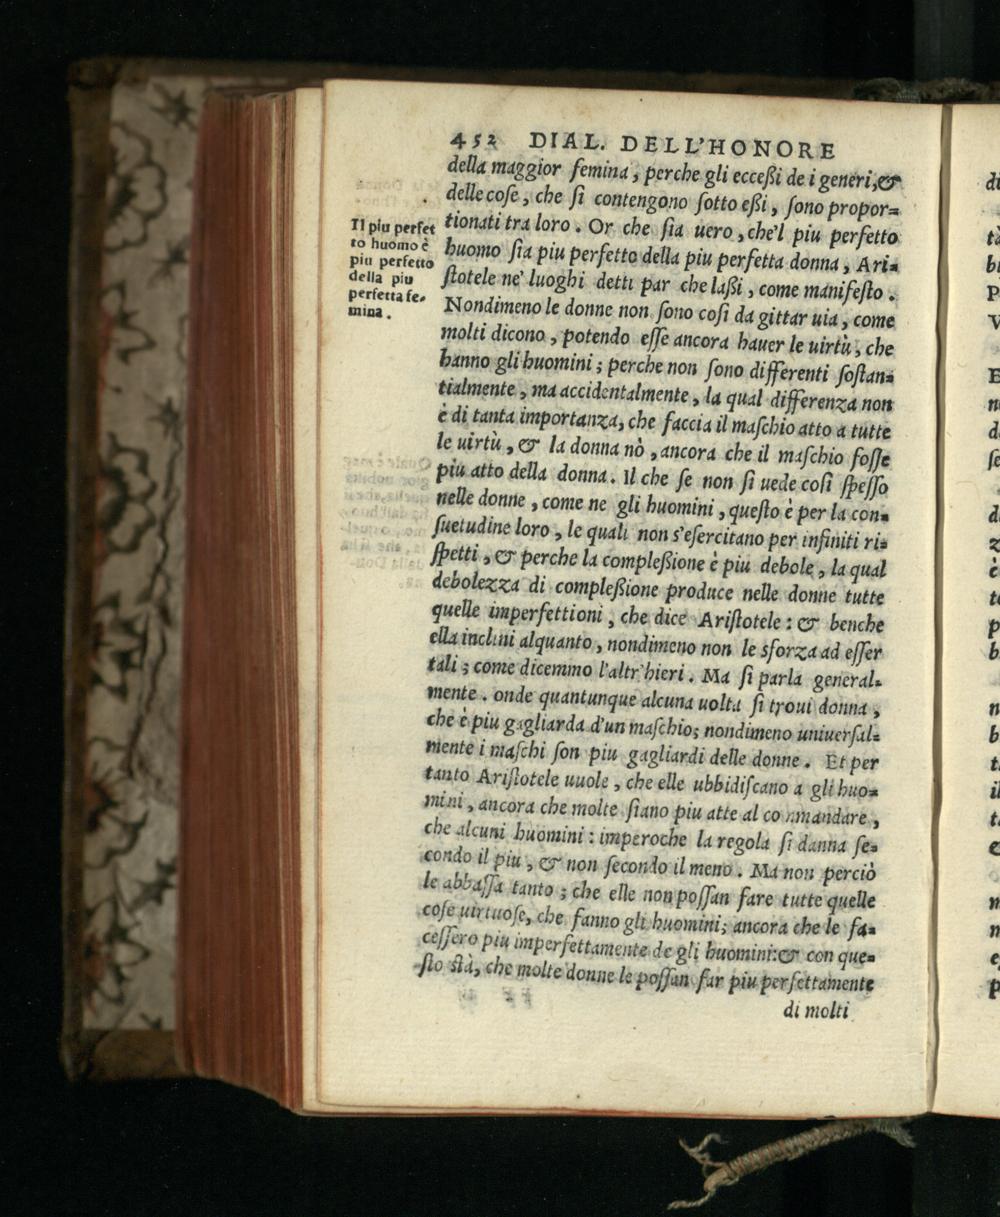 452 DIAL. DELL'HONORE
della maggior femina, perche gli ecceßi de i generi, &
delle cose, che si contengono sotto eßi, sono propor=
tionati tra loro. Or che sia uero, che'l piu perfetto
huomo sia piu perfetto della piu perfetta donna, Ari=
stotele ne' luoghi detti par che laßi, come manifesto.
Nondimeno le donne non sono cosi da gittar uia, come
molti dicono, potendo esse ancora hauer le uirtù, che
hanno gli huomini; perche non sono differenti sostan=
tialmente, ma accidentalmente, la qual differenza non
è di tanta importanza, che faccia il maschio atto a tutte
le uirtù, & la donna nò, ancora che il maschio fosse
piu atto della donna. Il che se non si uede cosi spesso
nelle donne, come ne gli huomini, questo è per la con=
suetudine loro, le quali non s'esercitano per infiniti ri=
spetti, & perche la compleßione è piu debole, la qual
debolezza di compleßione produce nelle donne tutte
quelle imperfettioni, che dice Aristotele: & benche
ella inclini alquanto, nondimeno non le sforza ad esser
tali; come dicemmo l'altr'hieri. Ma si parla general=
mente. onde quantunque alcuna uolta si troui donna,
che è piu gagliarda d'un maschio; nondimeno uniuersal=
mente i maschi son piu gagliardi delle donne. Et per
tanto Aristotele uuole, che elle ubbidiscano a gli huo=
mini, ancora che molte siano piu atte al commandare,
che alcuni huomini: imperoche la regola si danna se=
condo il piu, & non secondo il meno. Ma non perciò
le abbassa tanto; che elle non possan fare tutte quelle
cose uirtuose, che fanno gli huomini; ancora che le fa=
cessero piu imperfettamente de gli huomini: & con que=
sto stà, che molte donne le possan far piu perfettamente
di molti
Il piu perfet
to huomo è
piu perfetto
della piu
perfetta fe-
mina.